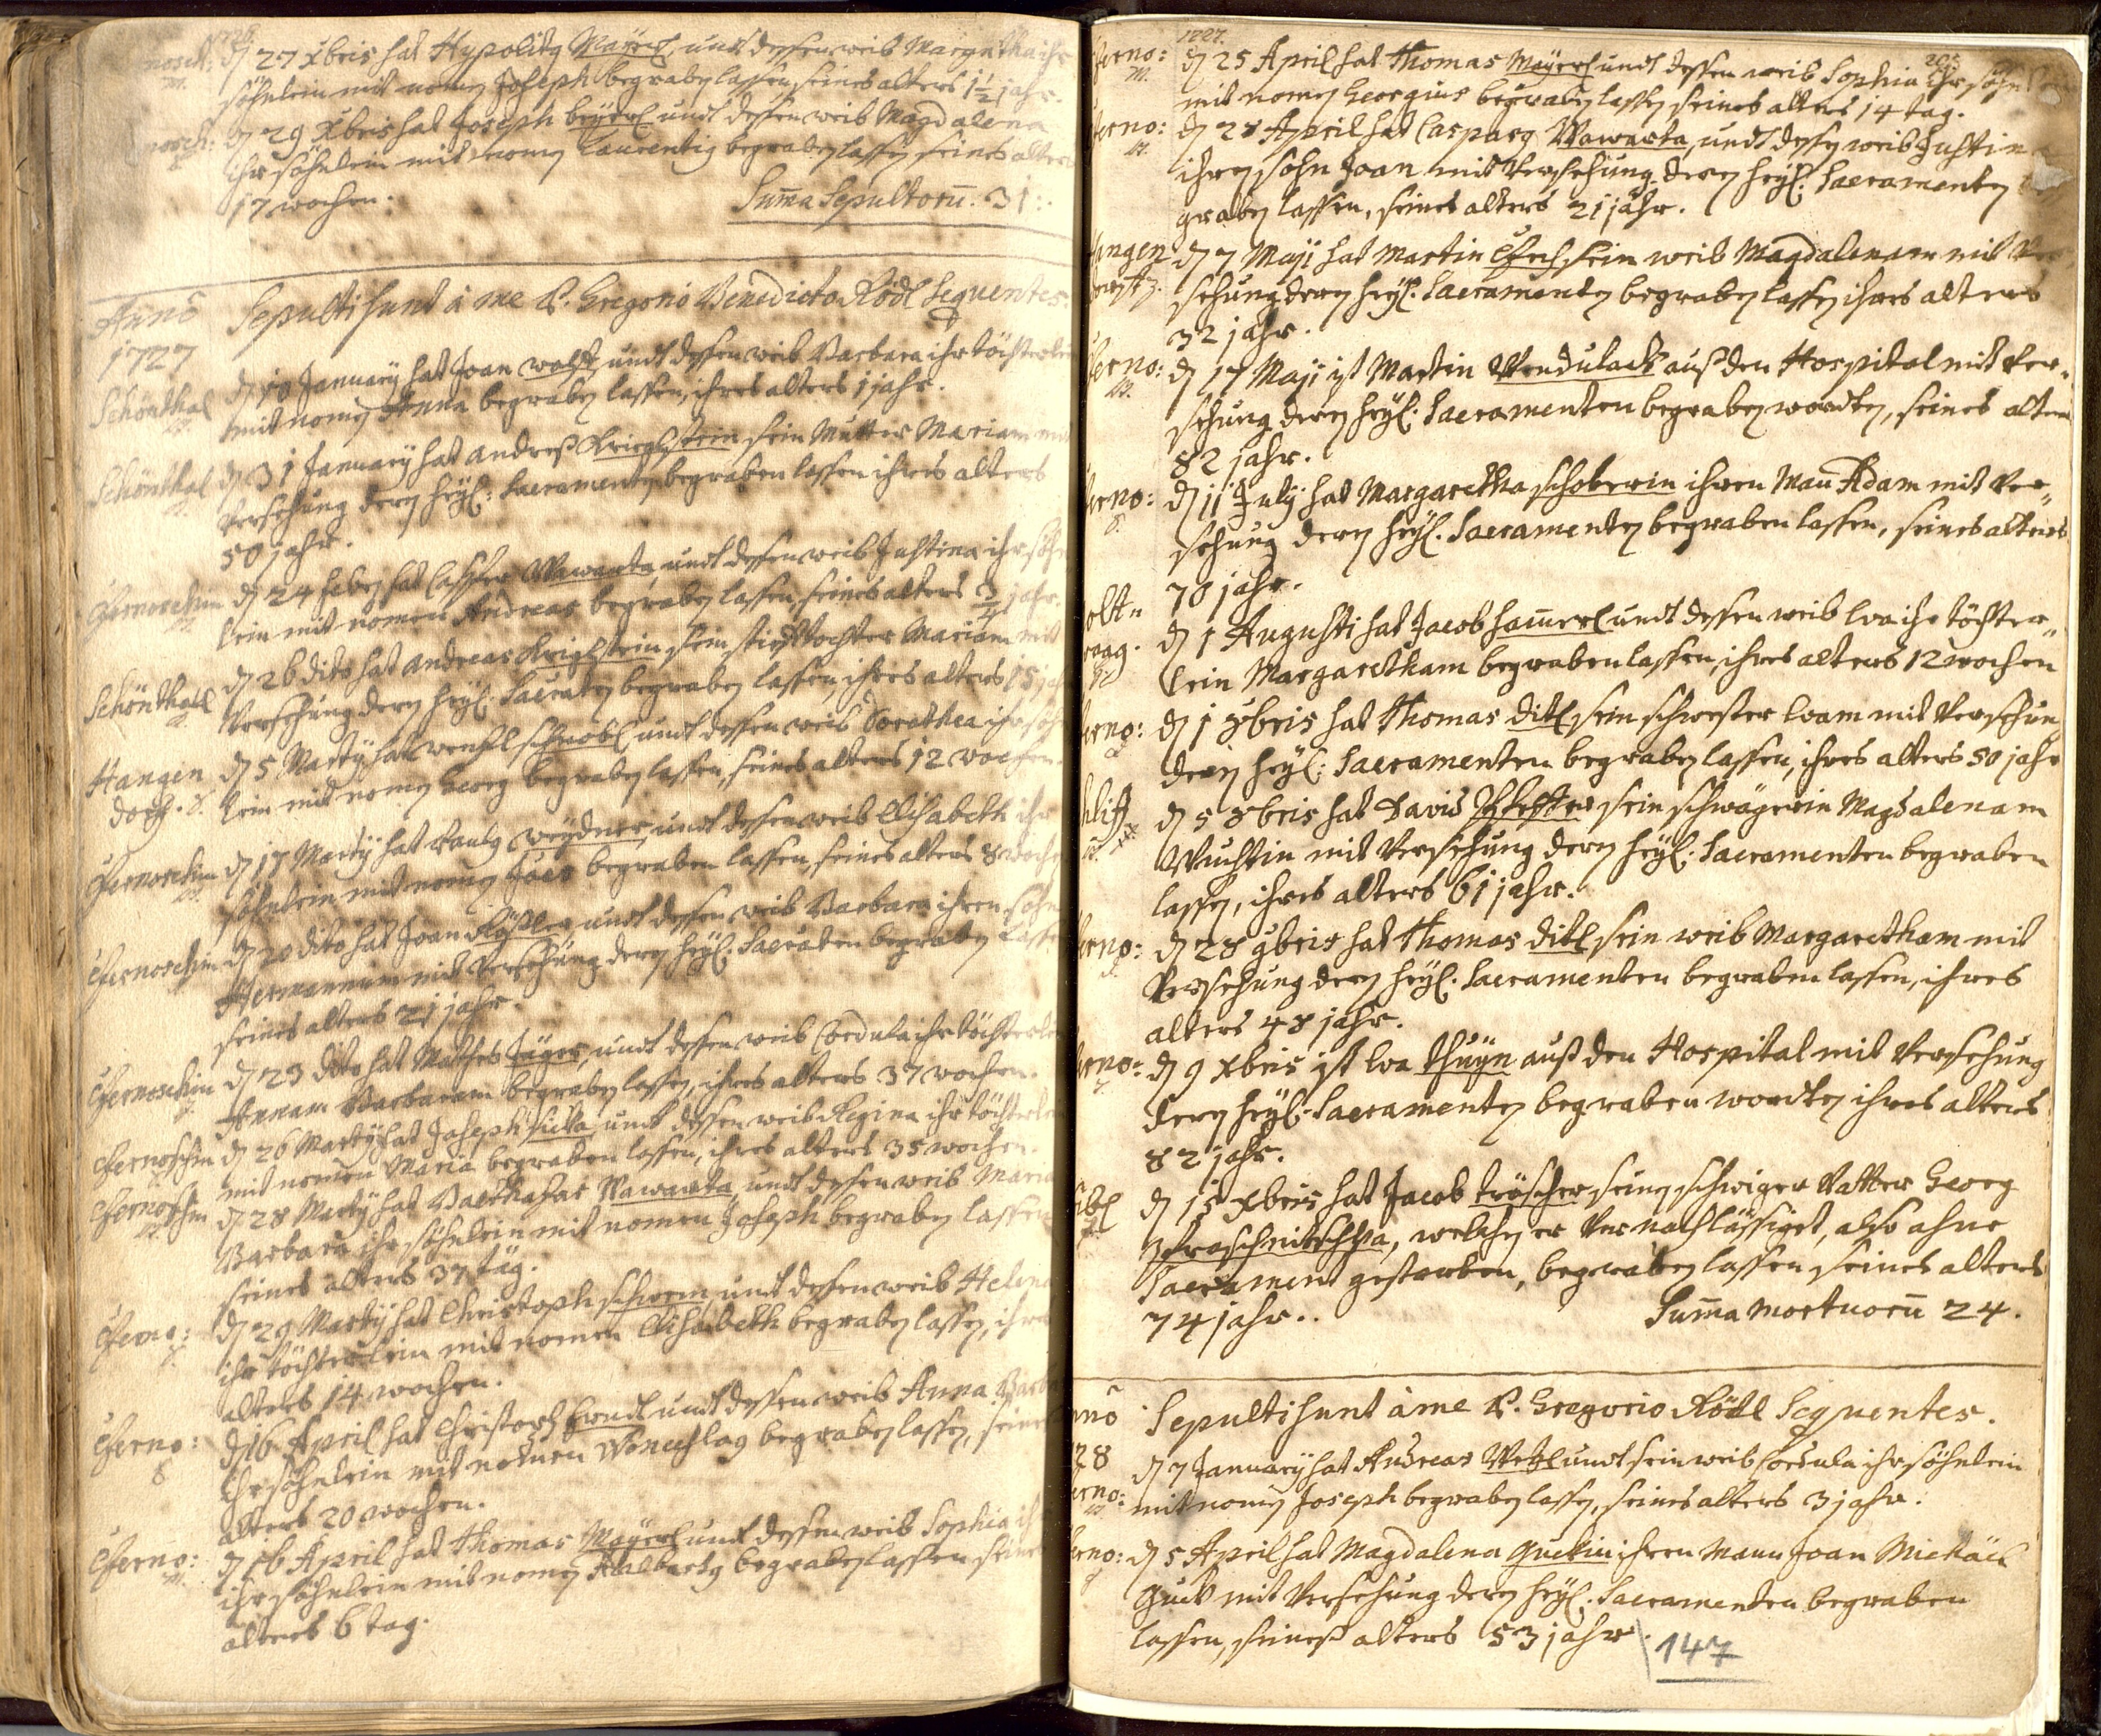 1726.
nosch: dn 27 Xbris hat Hypolitg Mayerl, undt dessen weib Margretha ihr
M. söhnlein mit nomen Joseph begraben lassen, seines alters 1½ jahr.
nosch: dn 29 Xbris hat Joseph beyerl undt dessen weib Magdalena
ihr söhnlein mit nomen Laurentig begraben lassen seines alters
17 wochen.
Suma Sepultorū. 31.
Anno Sepulti sunt à me P. Gregorio Benedicto Rödl Sequentes.
1727
dn 18 January hat Joan wolff, undt dessen weib Barbara ihr töchterlein
Schönthal mit nomen Anna begraben lassen, ihres alters 1 jahr.
Schönthal dn 31 January hat andreß Krieglstein sein Mutter Mariam mit
Versehung deren heyl: Sacramenten begraben lassen ihres alters
50 jahr.
Czernoschin dn 24 feben hat Casper Wawarta, undt dessen weib Justina ihr söhn
lein mit nomen Andreas begraben lassen, seines alters ¾ jahr.
dn 26 dito hat andreas Krieglstein sein stieftochter Mariam mit
Schönthall Versehung deren heyl: Sacraten begraben lassen, ihres alters 15 jahr
Hangen dn 5 Marty hat wentzl schnobl undt dessen weib Dorothea ihr söhn
dorff. S. lein mit nomen Georg begraben lassen, seines alters 12 wochen.
dn 17 Marty hat Paulg weydner, undt dessen weib Elisabeth ihr
Czernoschin söhnlein mit nomen Joes begraben lassen, seines alters 8 wochen
Czernoschin dn 20 dito hat Joan Rößler undt dessen weib Barbara ihren sohn
Hermannum mit Versehung deren heyl: Sacraten begraben lassen
seines alters 21 jahr.
Czernoschin dn 23 dito hat Mathes Jäger, undt dessen weib Cordula ihr töchterlein
Annam Barbaram begraben lassen, ihres alters 37 wochen.
Czernoschin dn 26 Marty hat Joseph sicka undt dessen weib Regina ihr töchterlein
mit nomen Maria begraben lassen, ihres alters 35 wochen.
Czernoschin dn 28 Marty hat Balthasar Wawarta, undt dessen weib Maria
Barbara ihr söhnlein mit nomen Joseph begraben lassen
seines alters 37 täg.
Czerno: dn 29 Marty hat Christoph schwem, undt dessen weib Helena
ihr töchterlein mit nomen Elisabeth begraben lassen, ihres
alters 14 wochen.
Czerno: dn 16 April hat Christoph undt dessen weib Anna
S ihr söhnlein mit nomen Wenceslag begraben lassen, seines
alters 20 wochen.
Czerno: dn 16 April hat Thomas Mayerl undt dessen weib Sophia
M. ihr söhnlein mit nomen Adalbertg begraben lassen seines
alters 6 tag.
1727.
205.
Czerno: dn 25 April hat Thomas Mayerl undt dessen weib Sophia ihr söhnlein
M. mit nomen Georgius begraben lassen seines alters 14 tag.
zerno: dn 28 April hat Casparg Wawarta, undt dessen weib Justina
ihren sohn Joan mit Versehung deren heyl: Sacramenten
graben lassen, seines alters 21 jahr.
angen dn 7 Maji hat Martin sein weib Magdalenam mit Ver
sehung deren heyl: Sacramenten begraben lassen ihres alters
32 jahr.
zerno: dn 17 Maji ist Martin Wendulack auß den Hospital mit Ver=
sehung deren heyl: Sacramenten begraben worden, seines alters
82 jahr.
erno: dn 11 July hat Margaretha schoberin ihren Man Adam mit Ver=
S. sehung deren heyl: Sacramenten begraben lassen, seines alters
70 jahr.
olt=
waag. dn 1 Augusti hat Jacob hamerl undt dessen weib Eva ihr töchter=
lein Margaretham begraben lassen, ihres alters 12 wochen
erno: dn 1 8bris hat Thomas ditl sein schwester Evam mit Versehung
deren heyl: Sacramenten begraben lassen, ihres alters 50 jahr
dn 5 8bris hat Davis sein schwägerin Magdalenam
Wuchtin mit Versehung deren heyl: Sacramenten begraben
lassen, ihres alters 61 jahr.
erno: dn 28 9bris hat Thomas ditl sein weib Margaretham mit
Versehung deren heyl: Sacramenten begraben lassen, ihres
alters 48 jahr.
erno: dn 9 Xbris ist Eva thuyn auß den Hospital mit Versehung
deren heyl: Sacramenten begraben worden ihres alters
82 jahr.
dn 15 Xbris hat Jacob tröscher seinen schwiger Vatter Georg
welchen er Vernachlässiget, also ohne
Sacrament gestorben, begraben lassen seines alters
74 jahr..
Suma mortuorū 24.
nno Sepulti sunt à me P. Gregorio Rödl Sequentes.
28 dn 7 January hat Andreas Wetzl undt sein weib Cordula ihr söhnlein
erno: mit nomen Joseph begraben lassen, seines alters 3 jahr.
erno: dn 5 April hat Magdalena Guckin ihren Mann Joan Michäel
Guck mit Versehung deren heyl: Sacramenten begraben
lassen, seineß alters 53 jahr.
147